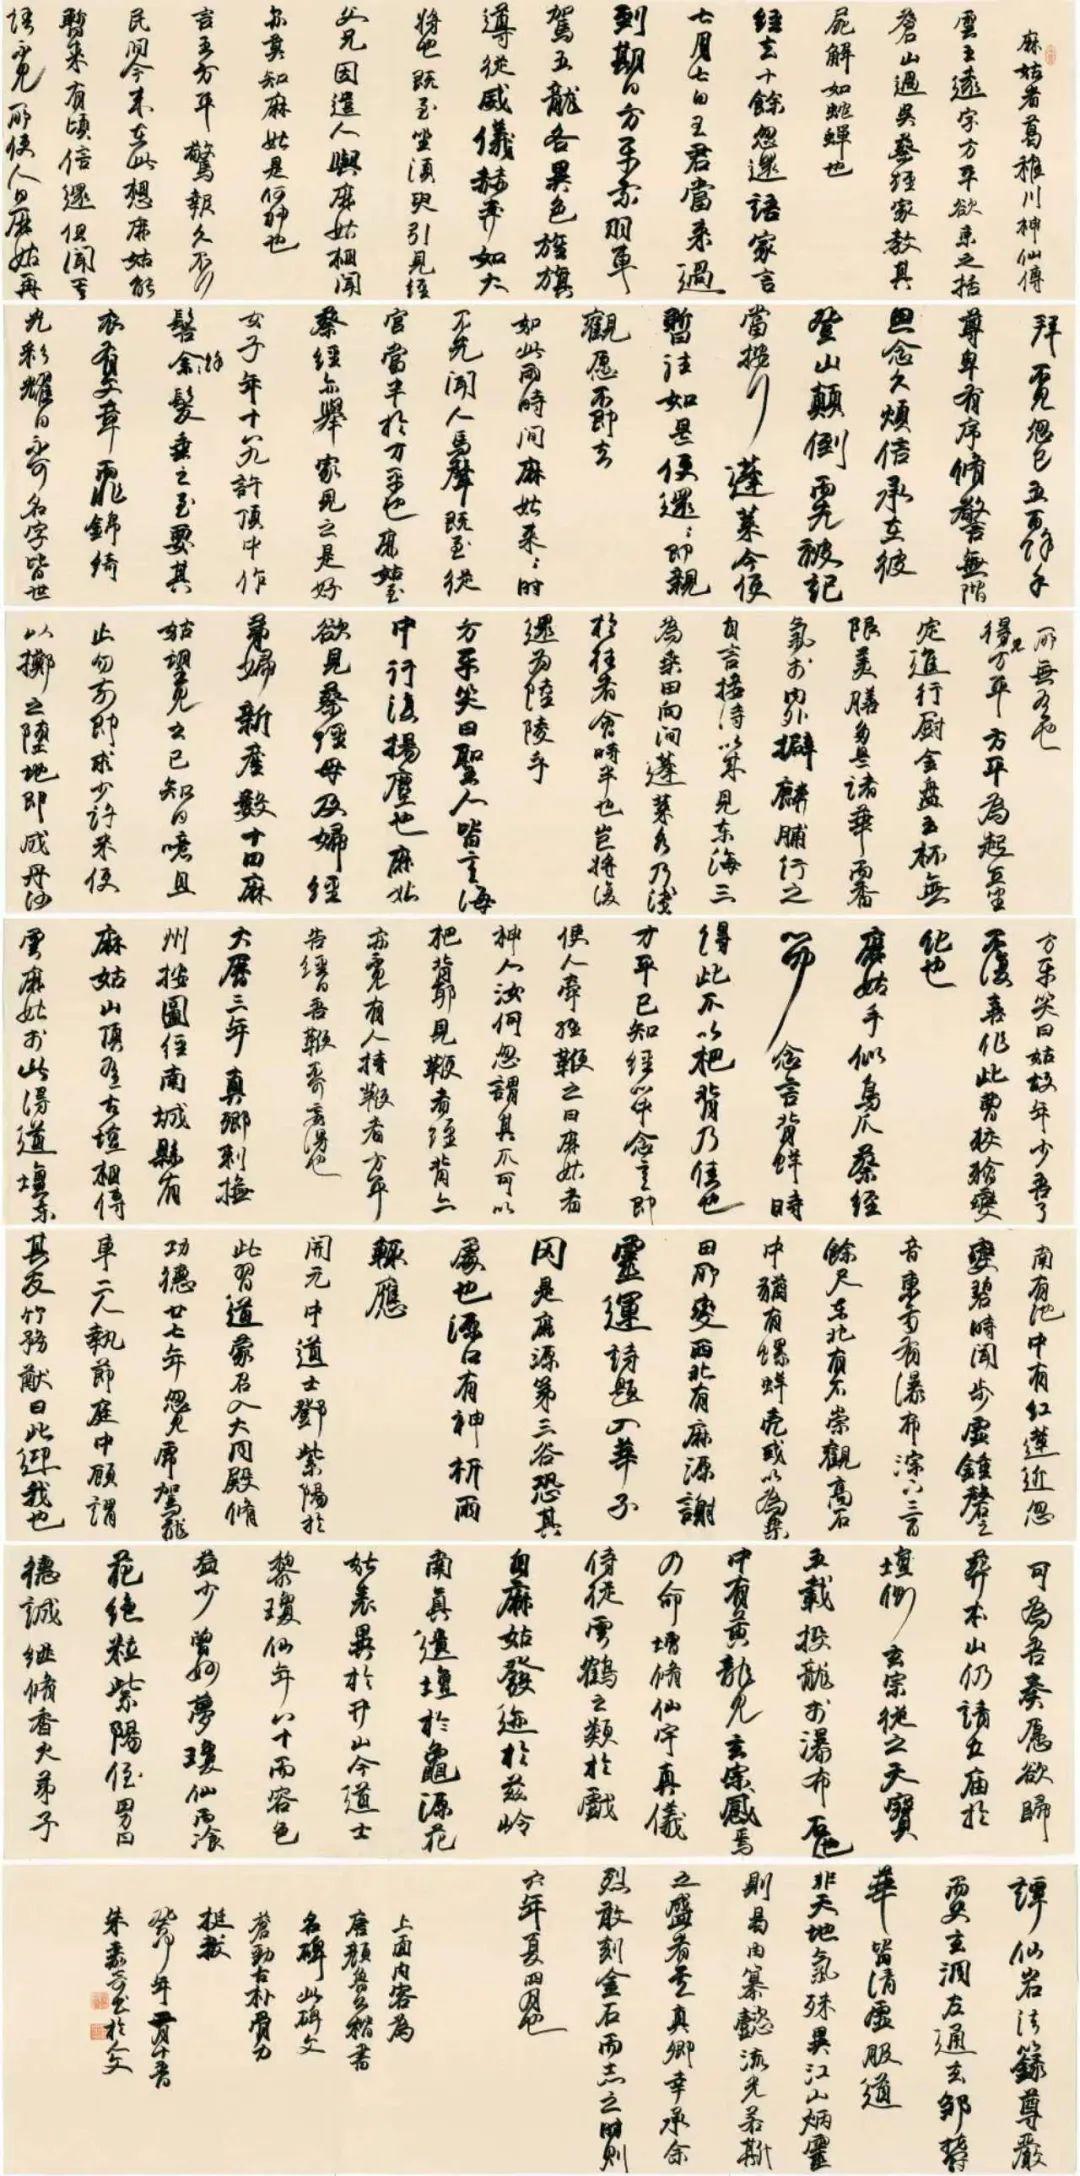 麻姑者葛稚川神仙傳
雲王遠字方平欲東之括
蒼山過吳蔡經家教其
尸解如蛇蟬也
經去十餘忽還語家言
七月七日王君當來過
到期日方平乘羽車
駕五龍各異色旌旗
導從威儀赫弈如大
將也既至坐須臾引見經
父兄因遣人與麻姑相聞
亦莫知麻姑是何神也
言王方平敬報久不行
民間今來在此想麻姑能
暫來有頃信還但聞其
語不見所使人曰麻姑再
拜不見忽已五百餘年
尊卑有序脩敬無階
思念久煩信承在彼
登山顛倒而先被記
當按行蓬萊今便
暫往如是便還還即親
觀願不即去
如此兩時間麻姑來來時
不先聞人馬聲既至從
官當半於方平也麻姑至
蔡經亦舉家見之是好
女子年十八九許頂中作
髻餘髮垂之至要其
衣有文章而非錦綺
光彩耀日不可名字皆世
所無有也
得見方平方平為起立坐
定進行廚金盤玉杯無
限美膳多是諸華而香
氣於內外擗麟脯行之
自言接侍以來見東海三
為桑田向間蓬萊水乃淺
於往者會時半也豈將復
還為陸陵乎
方平笑曰聖人皆言海
中行復揚塵也麻姑
欲見蔡經母及婦經
弟婦新產數十日麻
姑望見之已知曰噫且
止勿前即求少許米便
以擲之墮地即成丹沙
方平笑曰姑故年少吾了
不復喜作此曹狡獪變
化也
麻姑手似鳥爪蔡經
心中念言背蛘時
得此爪以杷背乃佳也
方平已知經心中念言即
使人牽經鞭之曰麻姑者
神人汝何忽謂其爪可以
杷背耶見鞭著經背亦
亦不見有人持鞭者方平
告經曰吾鞭不可妄得也
大曆三年真卿刺撫
州按圖經南城縣有
麻姑山頂有古壇相傳
雲麻姑於此得道壇東
南有池中有紅蓮近忽
變碧時聞步虛鐘磬之
音東南有瀑布淙下三百
餘尺東北有石崇觀高石
中猶有螺蚌殼或以為桑
田所變西北有麻源謝
靈運詩題入華子
岡是麻源第三谷恐其
處也源口有神祈雨
輒應
開元中道士鄧紫陽於
此習道蒙召入大同殿脩
功德廿七年忽見虎駕龍
車二人執節庭中顧謂
其友竹務猷曰此迎我也
可為吾奏願欲歸
葬本山仍請立廟於
壇側玄宗從之天寶
五載投龍於瀑布石池
中有黃龍見玄宗感焉
乃命增脩仙宇真儀
侍從雲鶴之類於戲
自麻姑發迹於茲嶺
南真遺壇於龜源花
姑表異於井山今道士
黎瓊仙年八十而容色
益少曾妙夢瓊仙而湌
花絕粒紫陽侄男曰
德誠繼脩香火弟子
譚仙岩法籙尊嚴
而史玄洞左通玄鄒鬱
華皆清虛服道
非天地氣殊異江山炳靈
則曷由纂懿流光若斯
之盛者矣真卿幸承余
烈敢刻金石而志之時則
六年夏四月也
上面内容為
唐顏魯公楷書
名碑此碑文
蒼勁古朴骨力
挺拔